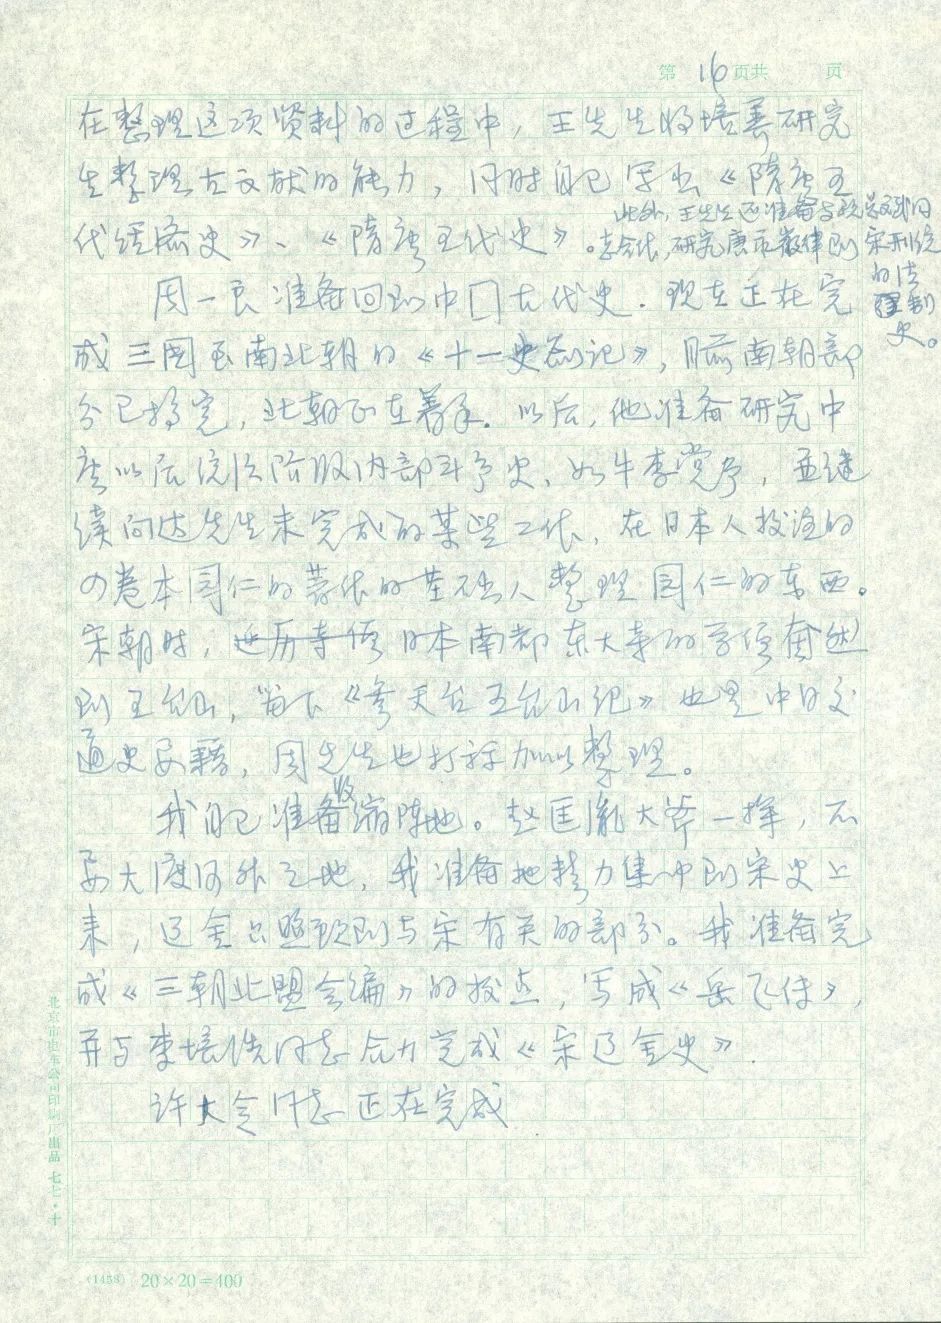 第 16 页共 页
在整理这项资料的过程中，王先生将培养研究
生整理古文献的能力，同时自己写出《隋唐五
代经济史》、《隋唐五代史》。
此外，王先生还准备与政
合作，研究唐 律到宋刑统
的法
制
史。
周一良准备回到中囗古代史．现在正在完
成三国至南北朝的《十一史札记》，目前南朝部
分已搞完，北朝正在着手．以后，他准备研究中
唐以后统治阶级内部斗争史、如牛李党争，并继
续向达先生未完成的某些工作，在日本人校注的
四卷本圆仁的著作的基础上整理圆仁的东西。
宋朝时，日本南都东大寺的学僧奝然
到五台山，留下《参天台五台山记》也是中日交
通史要籍，周先生也打算加以整理。
我自己准备收缩阵地。赵匡胤大斧一挥，不
要大渡河外之地，我准备把精力集中到宋史上
来，辽金只照顾到与宋有关的部分。我准备完
成《三朝北盟会编》的校点，写成《岳飞传》，
并与李培浩同志合力完成《宋辽金史》．
许大令同志正在完成
北京市电车公司印刷厂出品 七七·十
(1458) 20×20=400